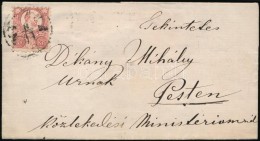 Tekintetes
Dékány Mihály
Urnak
Pesten
Közlekedési Ministerium